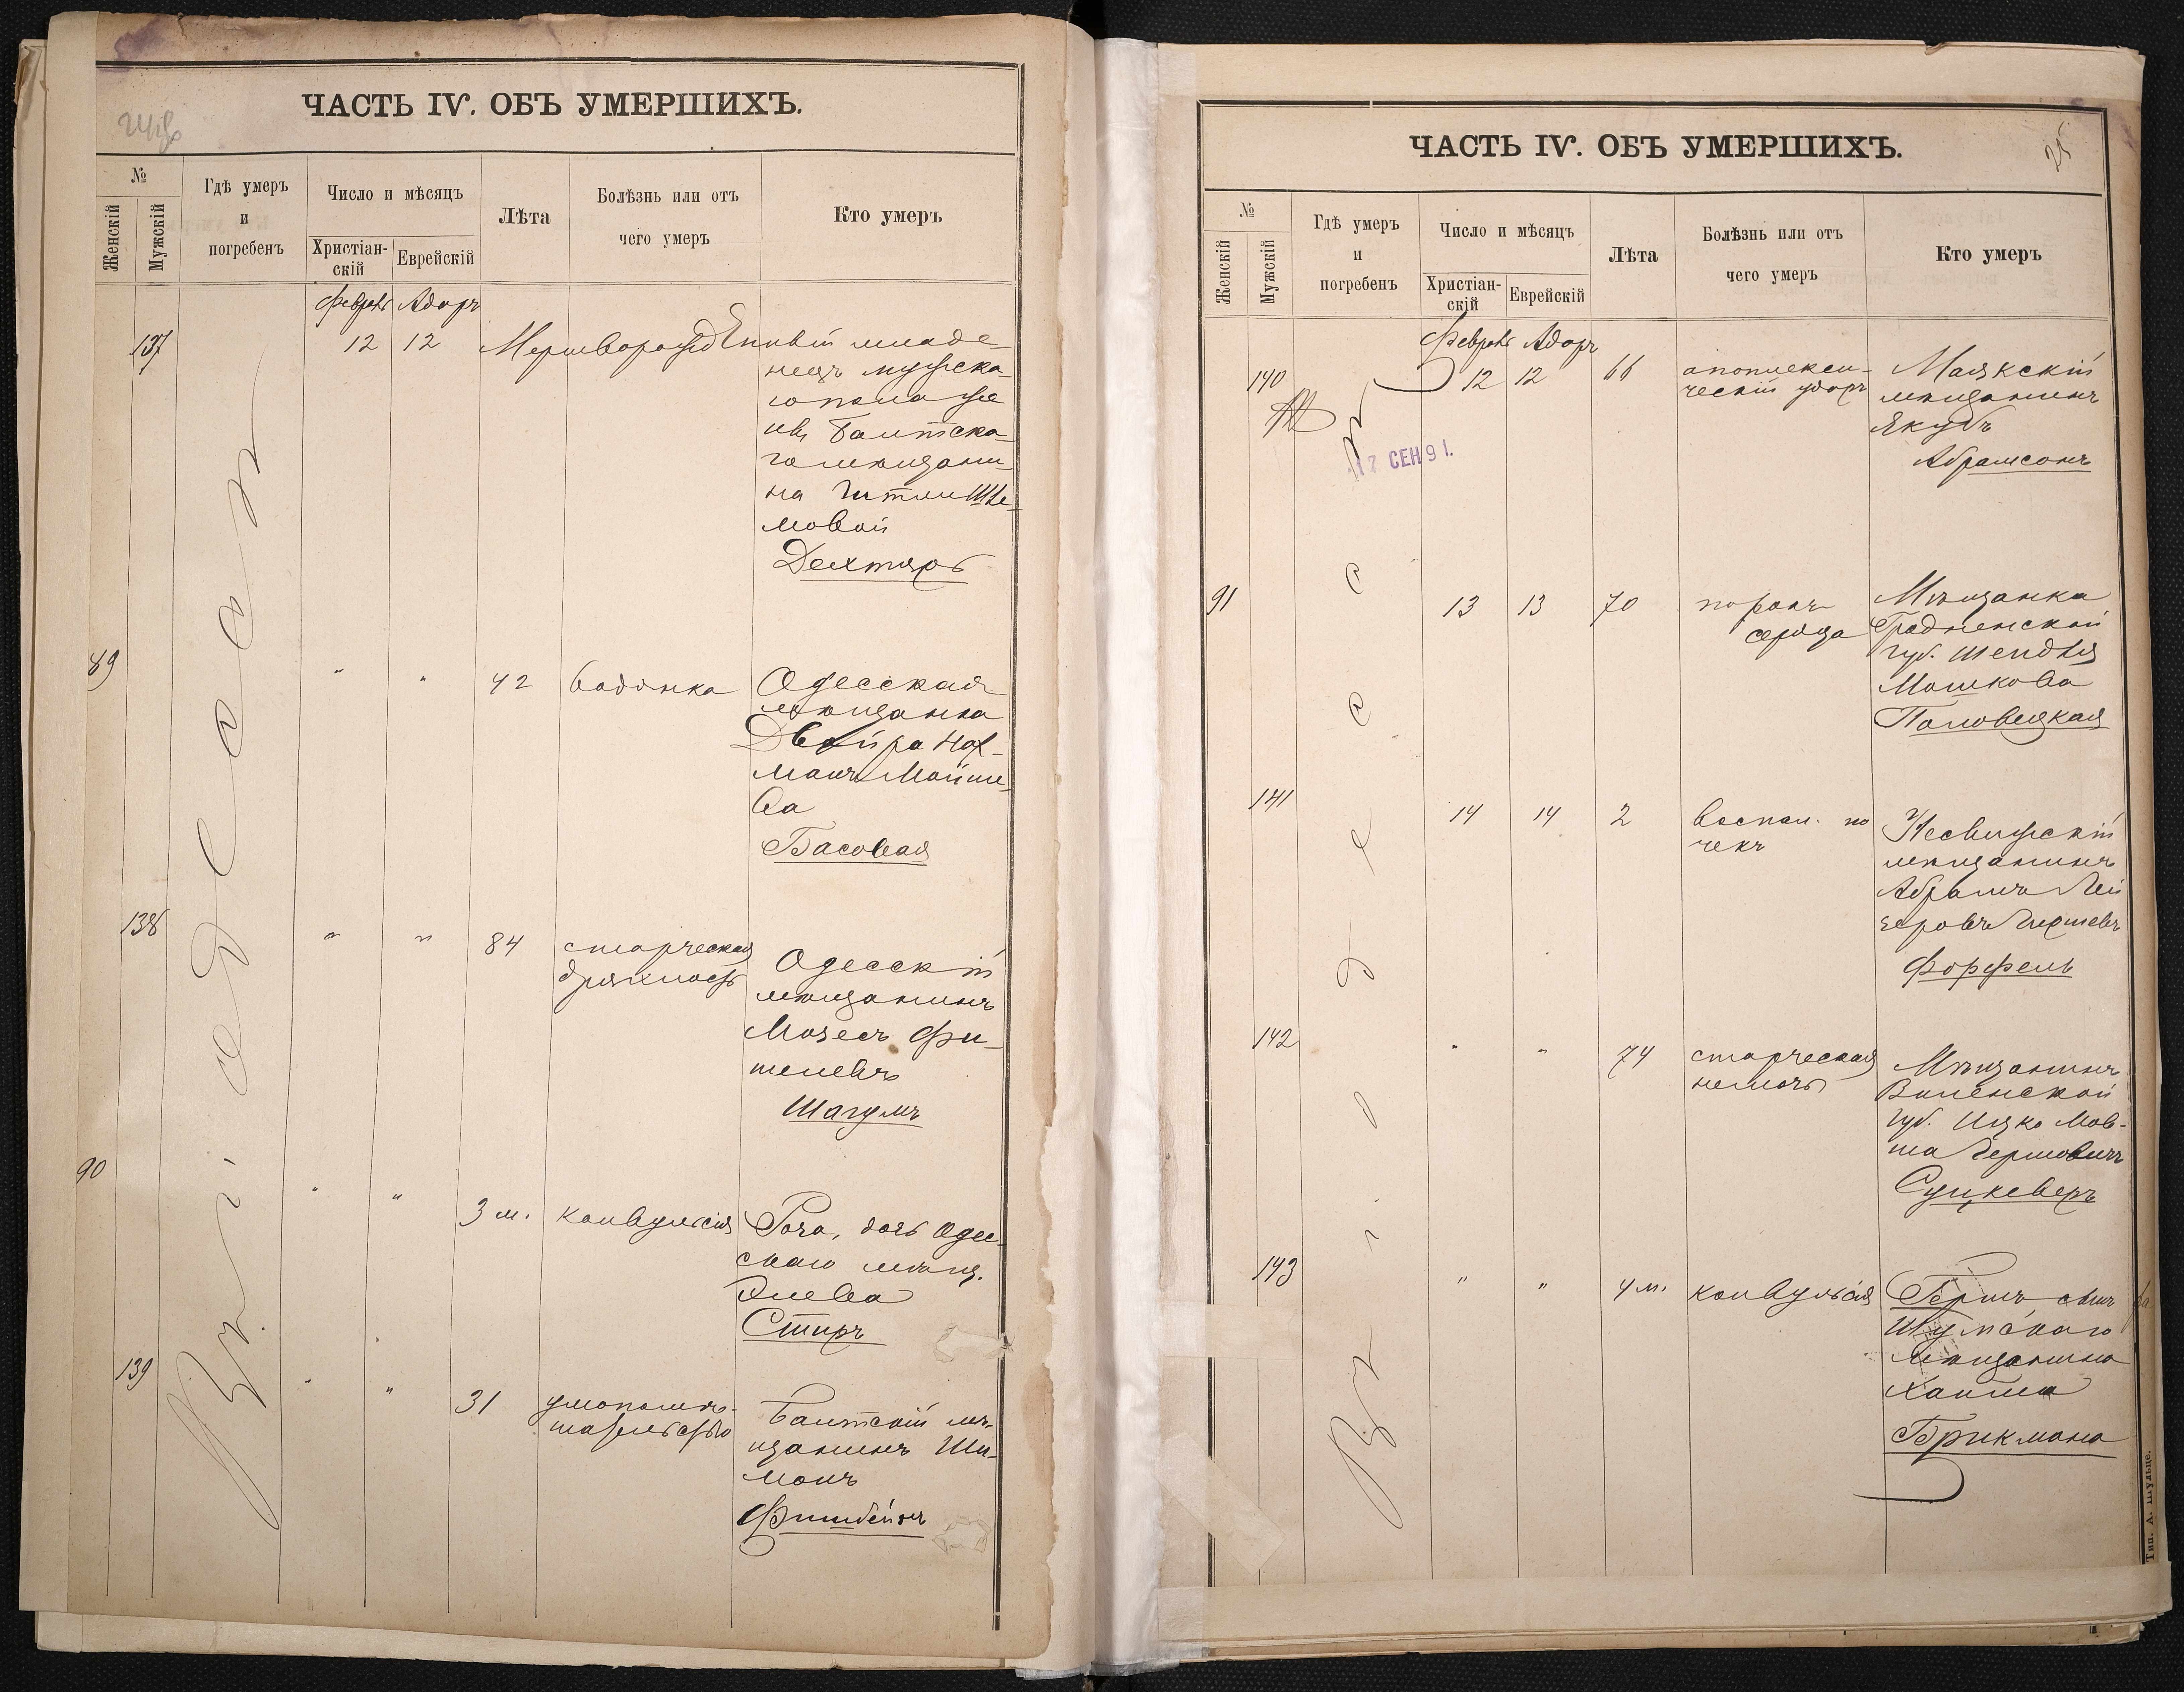 ЧАСТЬ IV. ОБЪ УМЕРШИХЪ.
№
Женскій
Мужскій
Гдѣ умеръ
и
погребенъ
Число и мѣсяцъ
Христіан-
скій
Еврейскій
Лѣта
Болѣзнь или отъ
чего умеръ
Кто умеръ
Въ Одессѣ
Февраль Адоръ
137 12 12 Мертворожденный младе-
нецъ мужска-
го пола же
ны Балтска-
го мѣщани-
на Гитли Шле-
мовой
Дехтяръ
89 " " 42 водянка Одесская
мѣщанка
Двойра Нох-
манъ Мойше-
ва
Басовая
138 " " 84 старческая
дряхлость
Одесскій
мѣщанинъ
Мозесъ Фи-
шелевъ
Шагумъ
90 " " 3 м. конвульсія Роза, дочь Одес-
скаго мѣщ.
Элева
Стиръ
139 " " 31 умопомѣ-
шательство
Балтскій мѣ-
щанинъ Ши-
монъ
Фишбейнъ
ЧАСТЬ IV. ОБЪ УМЕРШИХЪ.
25
№
Женскій
Мужскій
Гдѣ умеръ
и
погребенъ
Число и мѣсяцъ
Христіан-
скій
Еврейскій
Лѣта
Болѣзнь или отъ
чего умеръ
Кто умеръ
Въ Одессѣ
Февраль Адоръ
140 12 12 66 апоплекси-
ческій ударъ
Маякскій
мѣщанинъ
Якубъ
Абрамсонъ
17 СЕН 91.
91 13 13 70 порокъ
сердца
Мѣщанка
Гродненской
губ. Шендля
Мошкова
Половецкая
141 14 14 2 воспал. по
чекъ
Несвижскій
мѣщанинъ
Абрамъ Лей
зеровъ Гиршевъ
Форфель
142 " " 74 старческая
немочь
Мѣщанинъ
Виленской
губ. Ицко Мов-
ша Гершовичъ
Суцкеверъ
143 " " 4 м. конвульсія Бершъ, сынъ
Шумскаго
мѣщанина
Хаима
Брикмана
Тип. А. Шульце.